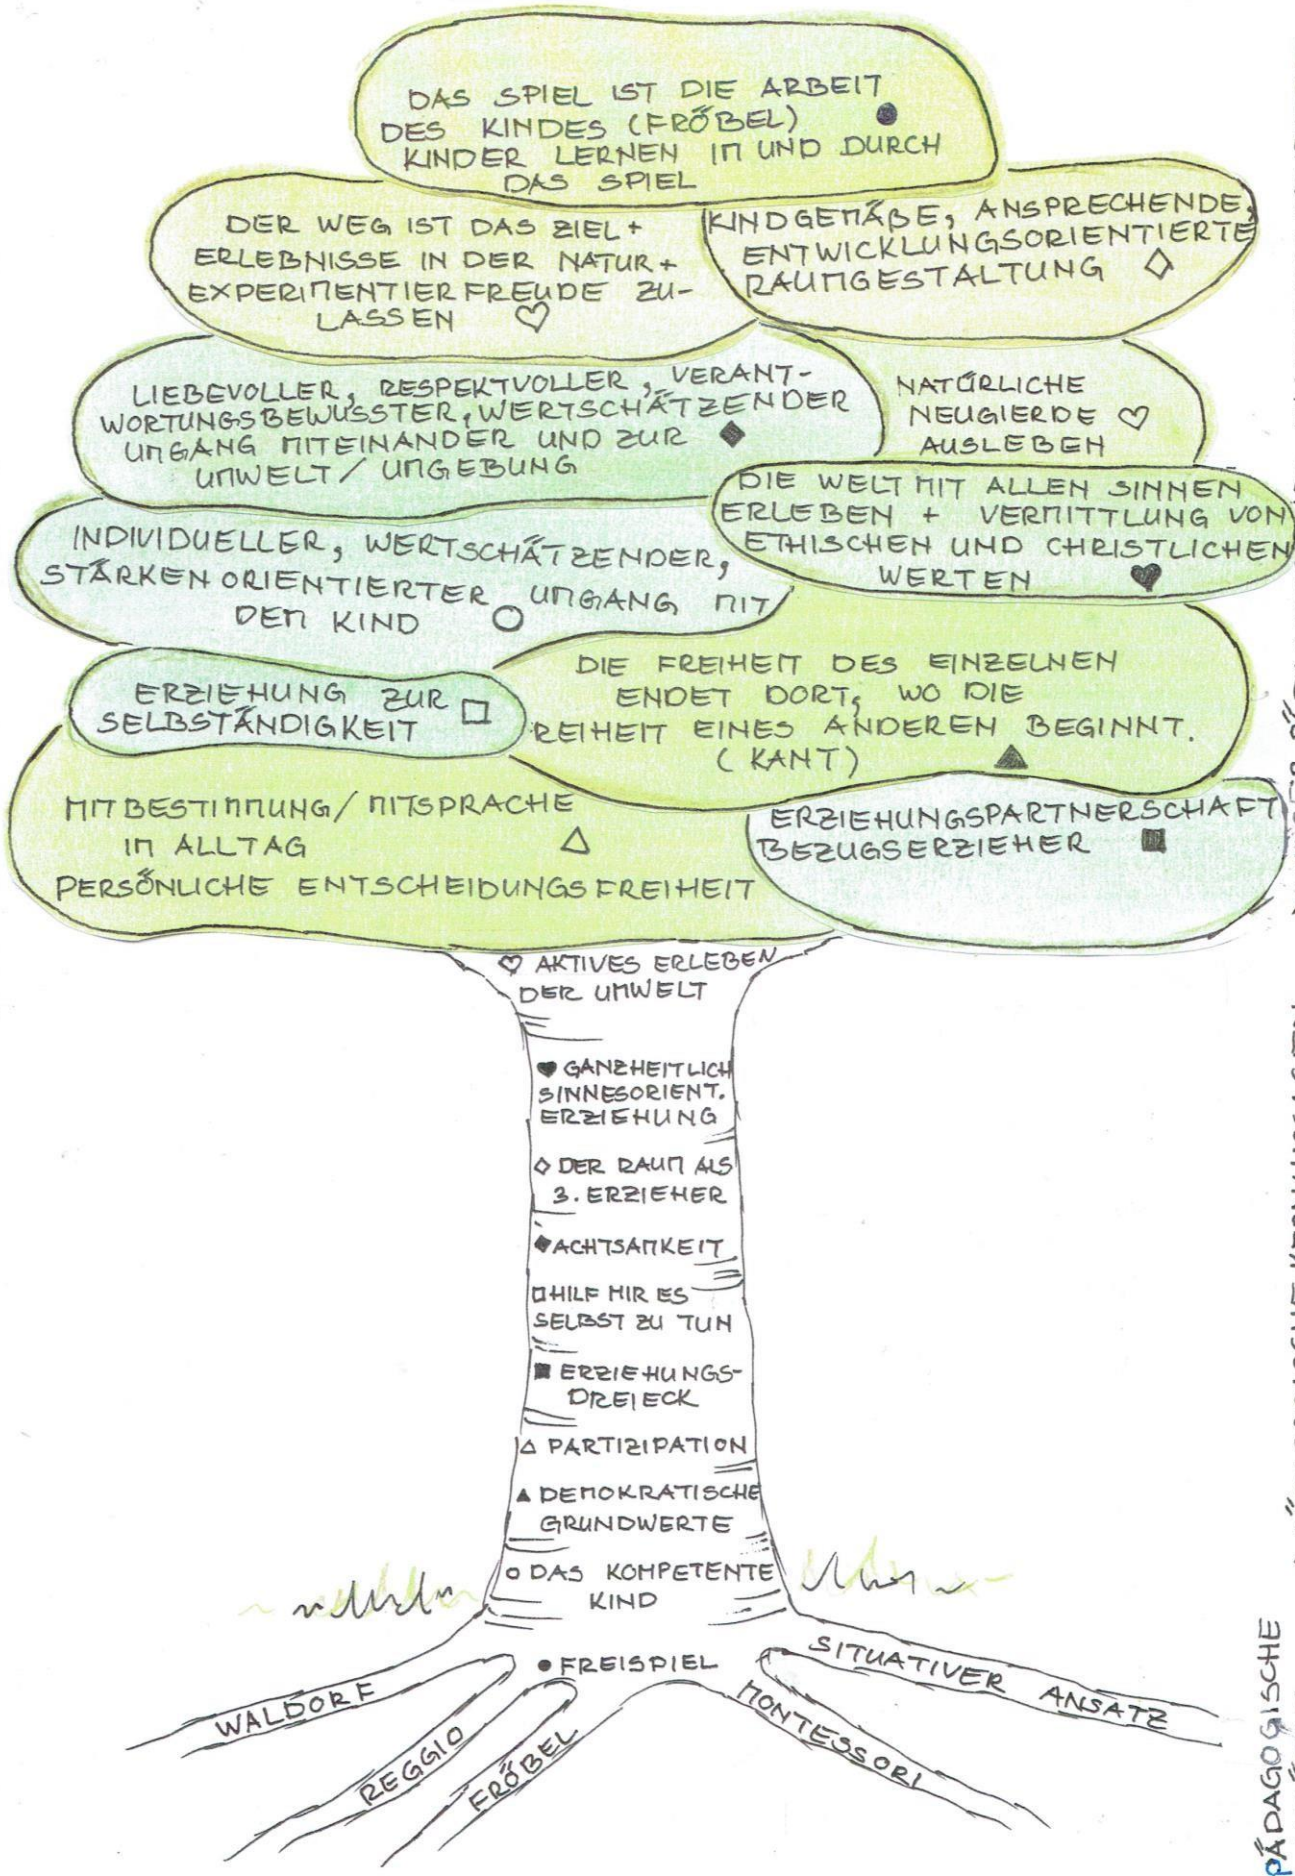 DAS SPIEL IST DIE ARBEIT
DES KINDES (FRÖBEL) ●
KINDER LERNEN IM UND DURCH
DAS SPIEL
DER WEG IST DAS ZIEL +
ERLEBNISSE IN DER NATUR +
EXPERIMENTIERFREUDE ZU-
LASSEN ♡
KINDGEMÄßE, ANSPRECHENDE,
ENTWICKLUNGSORIENTIERTE
RAUMGESTALTUNG ◇
LIEBEVOLLER, RESPEKTVOLLER, VERANT-
WORTUNGSBEWUSSTER, WERTSCHÄTZENDER
UMGANG MITEINANDER UND ZUR ◆
UMWELT / UMGEBUNG
NATÜRLICHE
NEUGIERDE ♡
AUSLEBEN
DIE WELT MIT ALLEN SINNEN
ERLEBEN + VERMITTLUNG VON
ETHISCHEN UND CHRISTLICHEN
WERTEN ♥
INDIVIDUELLER, WERTSCHÄTZENDER,
STÄRKENORIENTIERTER UMGANG MIT
DEM KIND ○
DIE FREIHEIT DES EINZELNEN
ENDET DORT, WO DIE
REIHEIT EINES ANDEREN BEGINNT.
(KANT) ▲
ERZIEHUNG ZUR
SELBSTÄNDIGKEIT □
MITBESTIMMUNG/MITSPRACHE
IM ALLTAG △
PERSÖNLICHE ENTSCHEIDUNGSFREIHEIT
ERZIEHUNGSPARTNERSCHAFT
BEZUGSERZIEHER ■
♡ AKTIVES ERLEBEN
DER UMWELT
♥ GANZHEITLICH
SINNESORIENT.
ERZIEHUNG
◇ DER RAUM ALS
3. ERZIEHER
◆ ACHTSAMKEIT
□ HILF MIR ES
SELBST ZU TUN
■ ERZIEHUNGS-
DREIECK
△ PARTIZIPATION
▲ DEMOKRATISCHE
GRUNDWERTE
○ DAS KOMPETENTE
KIND
● FREISPIEL
WALDORF
REGGIO
FRÖBEL
MONTESSORI
SITUATIVER ANSATZ
PÄDAGOGISCHE